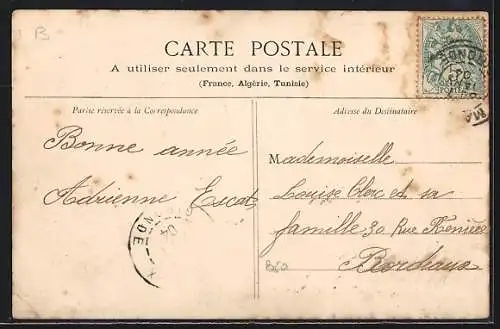 B
CARTE POSTALE
A utiliser seulement dans le service intérieur
(France, Algérie, Tunisie)
Partie réservée à la Correspondance
Adresse du Destinataire
Bonne année
Adrienne Escat
Mademoiselle
Louise Clerc et sa
famille 30 Rue
Bordeaux
B60
NDE
04